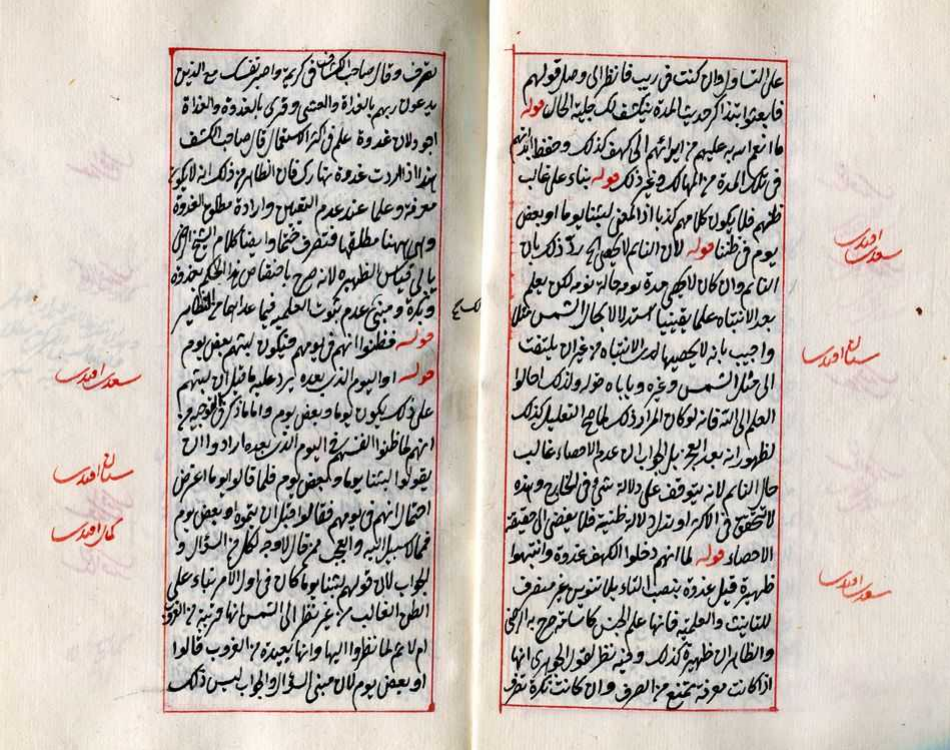 على التساؤل وان كنت فى ريب فانظر الى وصل قولهم
فابعثوا بتذاكر حديث المدة ينكشف لك جلية الحال قوله
ما انعم الله به عليهم من ايوائهم الى كهف كذلك وحفظ ابدانهم
فى تلك المدة من المهالك وغير ذلك قوله بناء على غالب
ظنهم فلا يكون كلامهم كذبا اذ المعنى لبثنا يوما او بعض
يوم فى ظننا قوله لان النائم لا يحصى الخ رد ذلك بان
النائم وان كان لا يحصى مدة نومه حالة نومه لكن يعلم
بعد الانتباه علما يقينيا استدلالا بحال الشمس مثلا
واجيب بانه لا يحصيها لدى الانتباه من غير ان يلتفت
الى مثل الشمس وغيره ويأباه ولذلك احالوا
العلم الى الله فانه لو كان المراد ذلك لما صح التعليل كذلك
لظهور انه بعد بل الجواب ان عدم الاحصاء غالب
حال النائم لانه يتوقف على دلالة شئ فى الخارج وهذه
لا تتحقق فى الاكثر او تدل دلالة ظنية فلا يفضى الى حقيقة
الاحصاء قوله لما انهم دخلوا الكهف غدوة وانتبهوا
ظهيرة قيل غدوة بنصب التاء بلا تنوين غير منصرف
للتانيث والعلمية فانها علم الجنس كاسامة صرح به الرضى
والظاهر ان ظهيرة كذلك وفيه نظر لقول الجوهرى انها
اذا كانت معرفة تمتنع من الصرف وان كانت نكرة تصرف
سعدى افندى
سنان افندى
سعدى افندى
تصرف وقال صاحب الكشاف فى كريمة واصبر نفسك مع الذين
يدعون ربهم بالغداة والعشى وقرئ بالغدوة والغداة
اجود لان غدوة علم فى اكثر الاستعمال قال صاحب الكشف
هذا اذا اردت غدوة نهارك فان الظاهر من ذلك انه لا يكون
معرفة وعلما عند عدم التعيين وارادة مطلق الغدوة
وهى ههنا مطلقها فتصرف حتما وايضا كلام الشيخ الرضى
يابى قياس الظهيرة لانه صرح باختصاص هذا الحكم بغدوة
وبكرة ومبنى عدم ثبوت العلمية فيما عداهما من النظائر
قوله فظنوا انهم فى يومهم فيكون لبثهم بعض يوم
قوله او اليوم الذى بعده يرد عليه ما قيل ان لبثهم
على ذلك يكون يوما وبعض يوم واما ما ذكر فى التوجيه من
انهم لما ظنوا انفسهم فى اليوم الذى بعده ارادوا ان
يقولوا لبثنا يوما وبعض يوم فلما قالوا يوما اعترض
احتمال انهم فى يومهم فقالوا قبل ان يتموه او بعض يوم
فمما لا سبيل اليه والعجب ممن قال لا وجه لكل من السؤال و
الجواب لان قولهم لبثنا يوما كان فى اول الامر بناء على
الظن الغالب من غير نظر الى الشمس انها قريبة من الغروب
ام لا ثم لما نظروا اليها وانها بعيدة من الغروب قالوا
او بعض يوم لان مبنى السؤال والجواب ليس ذلك
سعدى افندى
سنان افندى
كمال افندى